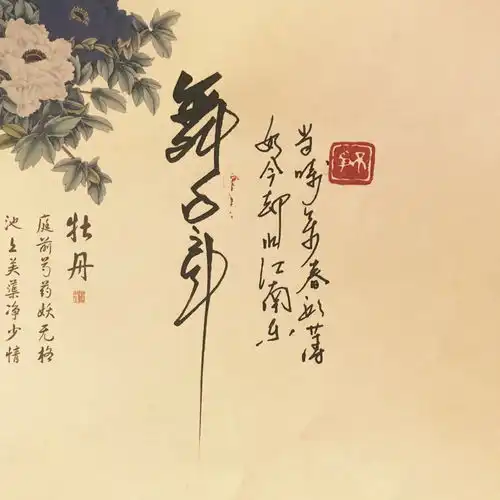 当时年少春衫薄
如今却忆江南乐
舞
牡丹
庭前芍药妖无格
池上美蕖净少情